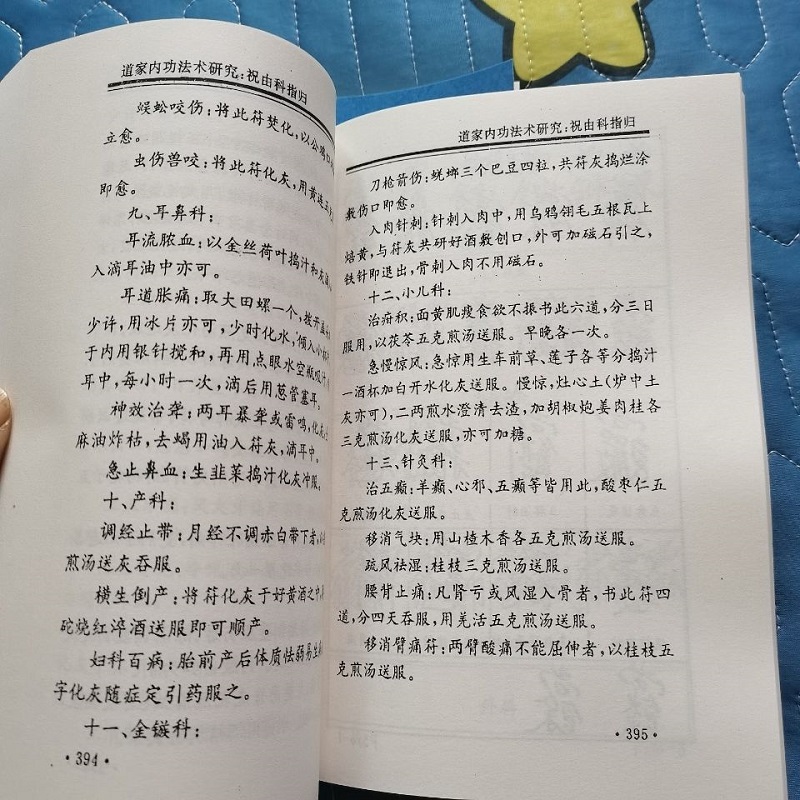 道家内功法术研究:祝由科指归
蜈蚣咬伤:将此符焚化,以公鸡口
立愈。
虫伤兽咬:将此符化灰,用黄连五
即愈。
九、耳鼻科:
耳流脓血:以金丝荷叶捣汁和灰滴
入滴耳油中亦可。
耳道胀痛:取大田螺一个,拨开盖
少许,用冰片亦可,少时化水,倾入小杯
于内用银针搅和,再用点眼水空瓶吸
耳中,每小时一次,滴后用葱管塞耳。
神效治聋:两耳暴聋或雷鸣,化灰
麻油炸枯,去蝎用油入符灰,滴耳中。
急止鼻血:生韭菜捣汁化灰冲服。
十、产科:
调经止带:月经不调赤白带下者,
煎汤送灰吞服。
横生倒产:将符化灰于好黄酒之中,
砣烧红淬酒送服即可顺产。
妇科百病:胎前产后体质怯弱易生
字化灰随症定引药服之。
十一、金镞科:
·394·
道家内功法术研究:祝由科指归
刀枪箭伤:蜣螂三个巴豆四粒,共符灰捣烂涂
敷伤口即愈。
入肉针刺:针刺入肉中,用乌鸦翎毛五根瓦上
焙黄,与符灰共研好酒敷创口,外可加磁石引之,
铁针即退出,骨刺入肉不用磁石。
十二、小儿科:
治疳积:面黄肌瘦食欲不振书此六道,分三日
服用,以茯苓五克煎汤送服。早晚各一次。
急慢惊风:急惊用生车前草、莲子各等分捣汁
一酒杯加白开水化灰送服。慢惊,灶心土(炉中土
灰亦可),二两煎水澄清去渣,加胡椒炮姜肉桂各
三克煎汤化灰送服,亦可加糖。
十三、针灸科:
治五癫:羊癫、心邪、五癫等皆用此,酸枣仁五
克煎汤化灰送服。
移消气块:用山楂木香各五克煎汤送服。
疏风祛湿:桂枝三克煎汤送服。
腰背止痛:凡肾亏或风湿入骨者,书此符四
道,分四天吞服,用羌活五克煎汤送服。
移消臂痛符:两臂酸痛不能屈伸者,以桂枝五
克煎汤送服。
·395·